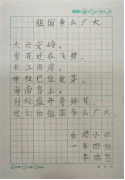 祖国多么广大
大兴安岭，
雪花还在飞舞。
长江两岸，
柳枝已生嫩芽。
海南岛上，
到处盛开着鲜花。
我们的祖国多么广大。